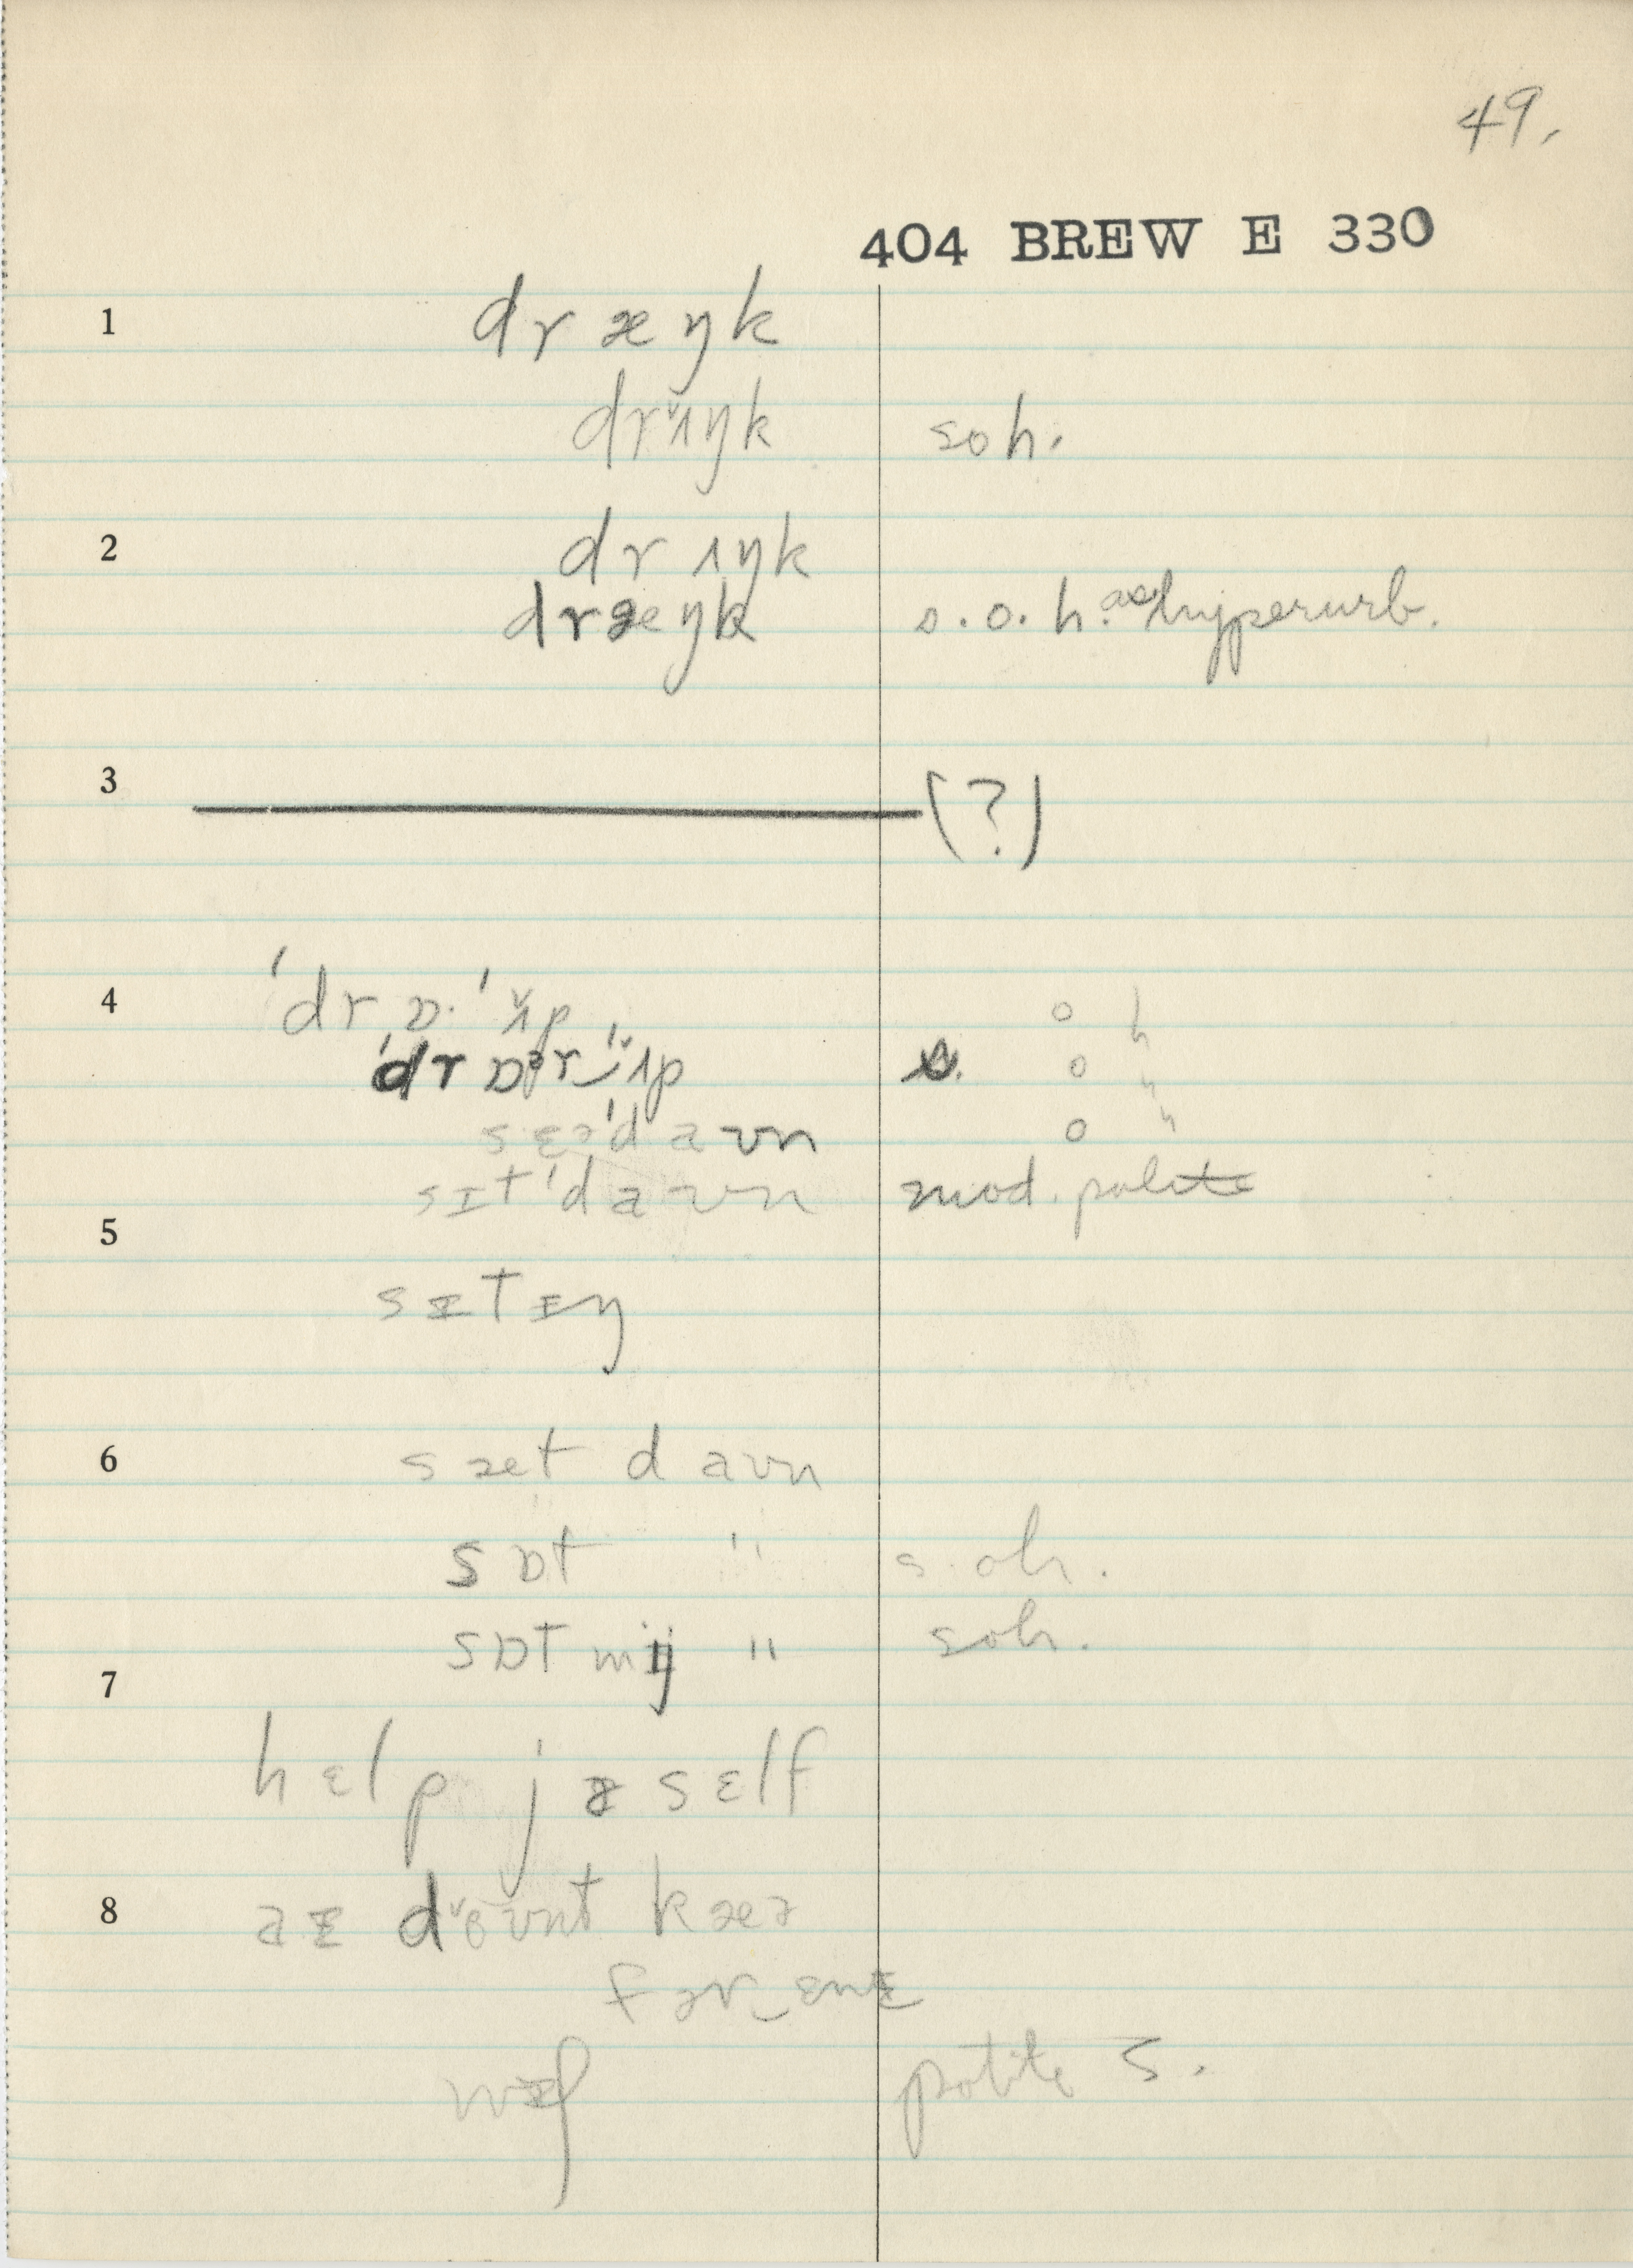 49.
404 BREW E 330
1 dræŋk
drʌ̌ŋk soh.
2 drʌŋk
dræŋk s.o.h. as hyperurb.
3 (?)
4 ˈdrɒ·ˈʌ̌p o h
ˈdrɒᵊr‿ˈʌ̌p s. o "
ˈdaʊn o "
sɪtˈdaʊn mod. polite
5
sɪtɪŋ
6 sæt daʊn
sɒt " s.oh.
sɒt mɪj " soh.
7
hɛlp jɚsɛlf
8 aɪ doʊnt kæɚ
fɚr‿ɛnɪ
polite s.